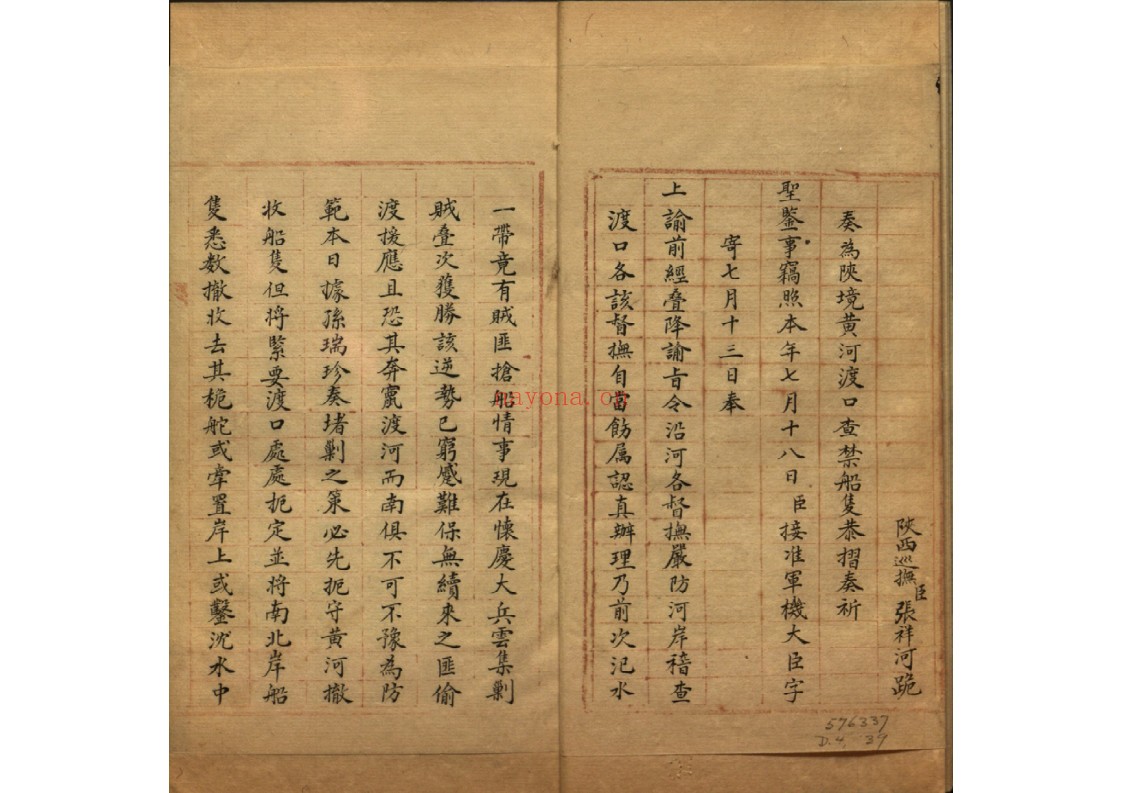 陝西巡撫臣張祥河跪
奏為陝境黄河渡口查禁船隻恭摺奏祈
聖鑒事竊照本年七月十八日臣接准軍機大臣字
寄七月十三日奉
上諭前經疊降諭旨令沿河各督撫嚴防河岸稽查
渡口各該督撫自當飭属認真辦理乃前次汜水
一帶竟有賊匪搶船情事現在懷慶大兵雲集剿
賊叠次獲勝該逆勢已窮蹙難保無續來之匪偷
渡援應且恐其奔竄渡河而南俱不可不豫為防
範本日據孫瑞珍奏堵剿之策必先扼守黄河撤
收船隻但将緊要渡口處處扼定並将南北岸船
隻悉数撤收去其桅舵或牽置岸上或鑿沈水中
576337
D.4 37